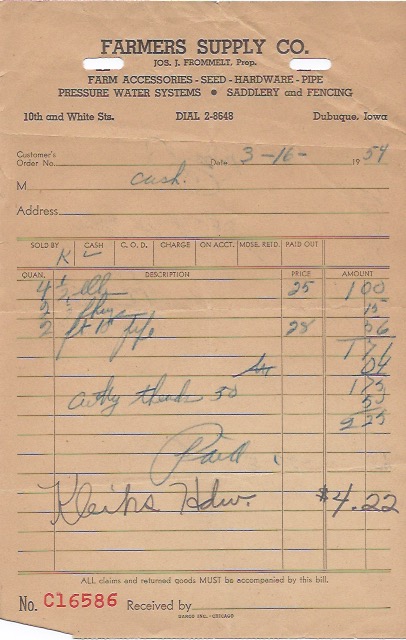 FARMERS SUPPLY CO.
JOS. J. FROMMELT, Prep.
FARM ACCESSORIES - SEED - HARDWARE - PIPE
PRESSURE WATER SYSTEMS • SADDLERY and FENCING
10th and White Sts. DIAL 2-8648 Dubuque, Iowa
Customer's
Order No. Date 3-16- 1954
M cash.
Address
SOLD BY K CASH C. O. D. CHARGE ON ACCT. MDSE. RETD. PAID OUT
QUAN. DESCRIPTION PRICE AMOUNT
4 1/2 ells 25 1 00
2 " plug 15
2 ft 28 56
1 71
04
1 75
threads 50 50
2 25
Paid
Hdw. $4.22
ALL claims and returned goods MUST be accompanied by this bill.
No. C16586 Received by
BARCO INC.-CHICAGO